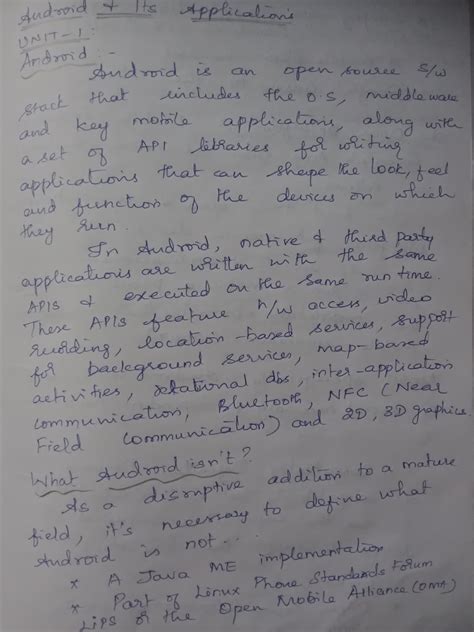 Android & Its Applications
UNIT-1:
Android :-
Android is an open source s/w
stack that includes the OS, middleware
and key mobile applications, along with
a set of API libraries for writing
applications that can shape the look, feel
and function of the devices on which
they run.
In Android, native & third party
applications are written with the same
APIs & executed on the same run time.
These APIs feature h/w access, video
recording, location-based services, support
for background services, map-based
activities, relational dbs, inter-application
communication, Bluetooth, NFC (Near
Field Communication) and 2D, 3D graphics.
What Android isn't?
As a disruptive addition to a mature
field, it's necessary to define what
Android is not...
* A Java ME implementation
* Part of Linux Phone Standards Forum
LiPS or the Open Mobile Alliance (OMA)